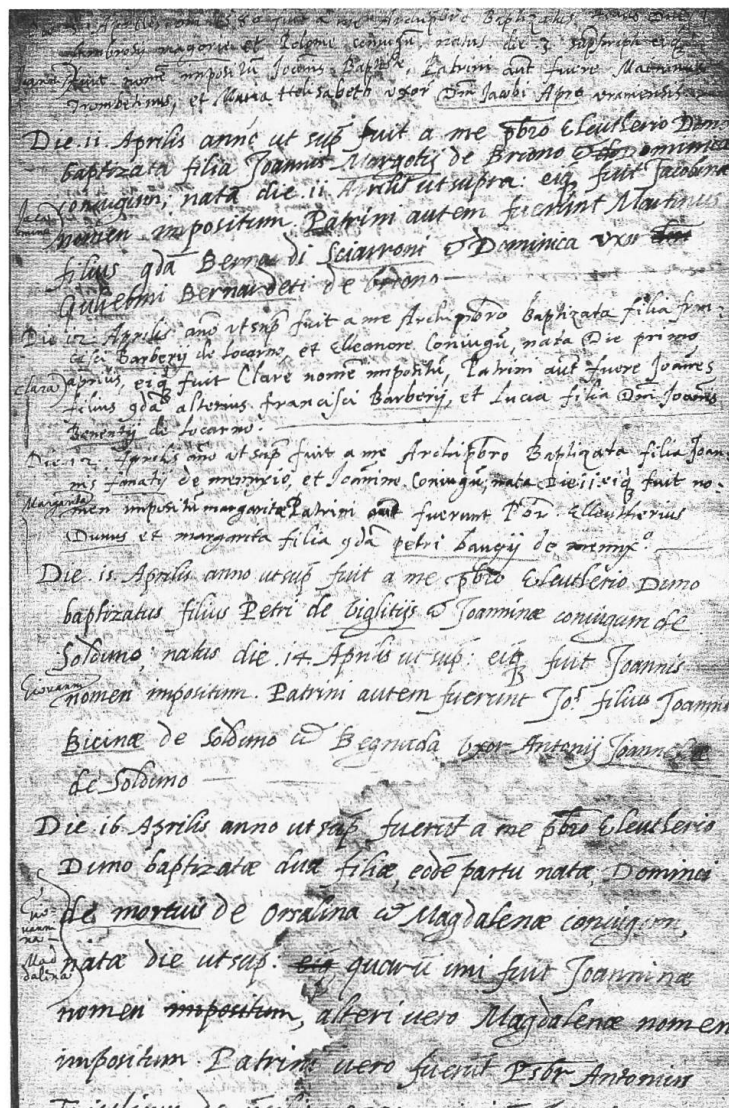 Aprilis fuit a me Archipbro Baptizatus
Ambrosij magorie et coniugũ, natus die 3 eiq3
fuit nomẽ impositũ Joañis Baptẽ, Patrini aut fuere
Trombetinus, et Maria Helisabeth uxor Dñi Jacobi
Die .11. Aprilis anno ut sup̃ fuit a me pbro Eleutherio Duno
baptizata filia Joannis Margotij de Briono & Dominicæ
coniugum, nata die .11. Aprilis ut supra: eiq3 fuit Jacobinæ
Jaco
bina
nomen impositum. Patrini autem fuerunt Martinus
filius qdã Berna di Sciarroni & Dominica uxor
Gulielmi Bernardeti de briono
Die 12 Aprilis año ut sup̃ fuit a me Archipbro Baptizata filia fran:
cisci Barberij de Locarno, et Eleonore Coniugũ, nata Die primo
Clara
aprilis, eiq3 fuit Clare nomẽ impositũ, Patrini aut fuere Joañes
filius qdã alterius francisci Barberij, et Lucia filia Dñi Joañis
de Locarno.
Die .12. Aprilis año ut sup̃ fuit a me Archipbro Baptizata filia Joan
nis fanatij de et Joanine Coniugũ, nata Die .11. eiq3 fuit no-
Margarita
men impositũ margaritæ Patrini aut fuerunt Pbr. Elleutherius
Dunus et margarita filia qdã petri de
Die .15. Aprilis anno ut sup̃ fuit a me pbro Eleutherio Duno
baptizatus filius Petri de biglitijs & Joanninæ coniugum de
Solduno, natus die .14. Aprilis ut sup̃: eiq3 fuit Joannis
Giovanni
nomen impositum. Patrini autem fuerunt Jo.s filius Joannis
Bicinæ de Solduno & Begnuda uxor Antonij
de Solduno
Die .16. Aprilis anno ut sup̃ fuerũt a me pbro Eleutherio
Duno baptizatæ duæ filiæ, eodẽ partu natæ, Dominici
Gio
vanni
na
Mad
dalena
de mortuis de Orsalina & Magdalenæ coniugum,
natæ die ut sup: eiq3 quarũ uni fuit Joanninæ
nomen impositum, alteri uero Magdalenæ nomen
impositum. Patrini uero fuerũt Psbr Antonius